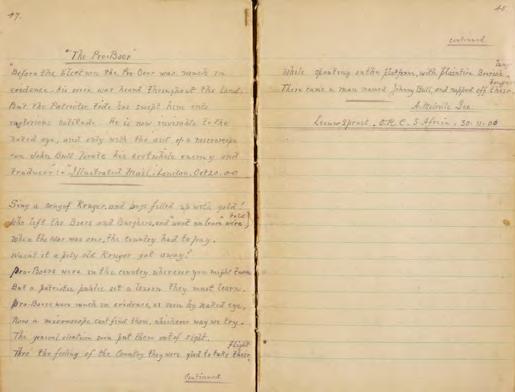 47.
"The Pro-Boer"
"Before the Election the Pro-Boer was much in
evidence. his voice was heard throughout the Land.
But the Patriotic tide has swept him into
mysterious solitude. He is now invisible to the
naked eye, and only with the aid of a microscope
can John Bull locate his erstwhile enemy and
traducer". "Illustrated Mail". London. Oct 20. 00
Sing a song of Kruger, and bags filled up with gold!
Who left the Boers and Burghers, and "went on leave" were told
When the War was over, the country had to pay.
Wasn't it a pity old Kruger got away?
Pro-Boers were in the country wherever you might turn
But a patriotic public set a lesson they must learn.
Pro-Boers were much in evidence, as seen by naked eye,
Now a microscope can't find them, whichever way we try.
The general election soon put them out of sight.
Thro' the feeling of the Country they were glad to take their flight
Continued
48.
continued
While spouting on the platform, with plaintive Boerish
There came a man named Johnny Bull, and nipped off their
A. Melville
Leeuw Spruit. O.R.C. S. Africa. 30.11.00